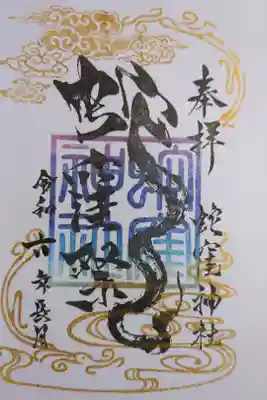 奉拝
蛇窪神社
蛇窪神社
令和六年長月